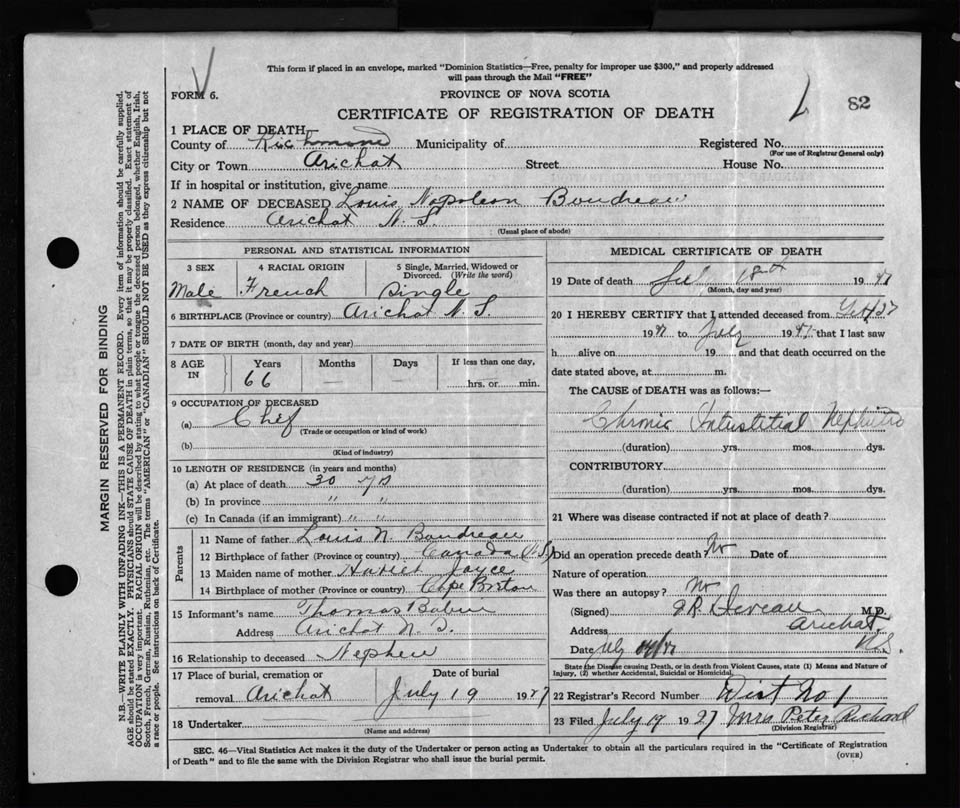 This form if placed in an envelope, marked "Dominion Statistics—Free, penalty for improper use $300," and properly addressed
will pass through the Mail "FREE"
FORM 6.
PROVINCE OF NOVA SCOTIA
82
CERTIFICATE OF REGISTRATION OF DEATH
1 PLACE OF DEATH
County of Richmond Municipality of Registered No.
(For use of Registrar General only)
City or Town Arichat Street House No.
If in hospital or institution, give name
2 NAME OF DECEASED Louis Napoleon Boudreau
Residence Arichat N. S.
(Usual place of abode)
PERSONAL AND STATISTICAL INFORMATION
3 SEX 4 RACIAL ORIGIN 5 Single, Married, Widowed or
Divorced. (Write the word)
Male French Single
6 BIRTHPLACE (Province or country) Arichat N. S.
7 DATE OF BIRTH (month, day and year)
8 AGE IN Years Months Days If less than one day,
66 — — hrs. or min.
9 OCCUPATION OF DECEASED
(a) Chef
(Trade or occupation or kind of work)
(b)
(Kind of industry)
10 LENGTH OF RESIDENCE (in years and months)
(a) At place of death 30 yrs
(b) In province " "
(c) In Canada (if an immigrant) " "
Parents
11 Name of father Louis N. Boudreau
12 Birthplace of father (Province or country) Canada (N.S.)
13 Maiden name of mother Harriet Joyce
14 Birthplace of mother (Province or country) Cape Breton
15 Informant's name Thomas
Address Arichat N. S.
16 Relationship to deceased Nephew
17 Place of burial, cremation or Date of burial
removal Arichat July 19 1927
18 Undertaker
(Name and address)
MEDICAL CERTIFICATE OF DEATH
19 Date of death 18th 19
(Month, day and year)
20 I HEREBY CERTIFY that I attended deceased from
19 to July 19 that I last saw
h alive on 19 and that death occurred on the
date stated above, at m.
The CAUSE of DEATH was as follows:—
Chronic Interstitial Nephritis
(duration) yrs. mos. dys.
CONTRIBUTORY
(duration) yrs. mos. dys.
21 Where was disease contracted if not at place of death?
Did an operation precede death? No Date of
Nature of operation
Was there an autopsy? No
(Signed) Deveau M.D.
Address Arichat
Date N.S.
State the Disease causing Death, or in death from Violent Causes, state (1) Means and Nature of
Injury, (2) whether Accidental, Suicidal or Homicidal.
22 Registrar's Record Number Dist No 1
23 Filed July 19 1927 Mrs Peter Richard
(Division Registrar)
SEC. 46—Vital Statistics Act makes it the duty of the Undertaker or person acting as Undertaker to obtain all the particulars required in the "Certificate of Registration
of Death" and to file the same with the Division Registrar who shall issue the burial permit.
(OVER)
MARGIN RESERVED FOR BINDING
N.B.—WRITE PLAINLY WITH UNFADING INK—THIS IS A PERMANENT RECORD. Every item of information should be carefully supplied.
AGE should be stated EXACTLY. PHYSICIANS should STATE CAUSE OF DEATH in plain terms, so that it may be properly classified. Exact statement of
OCCUPATION is very important. RACIAL ORIGIN will be described by stating to what people or tongue the deceased person belonged, whether English, Irish,
Scotch, French, German, Russian, Ruthenian, etc. The terms "AMERICAN" or "CANADIAN" SHOULD NOT BE USED as they express citizenship but not
a race or people. See instructions on back of Certificate.